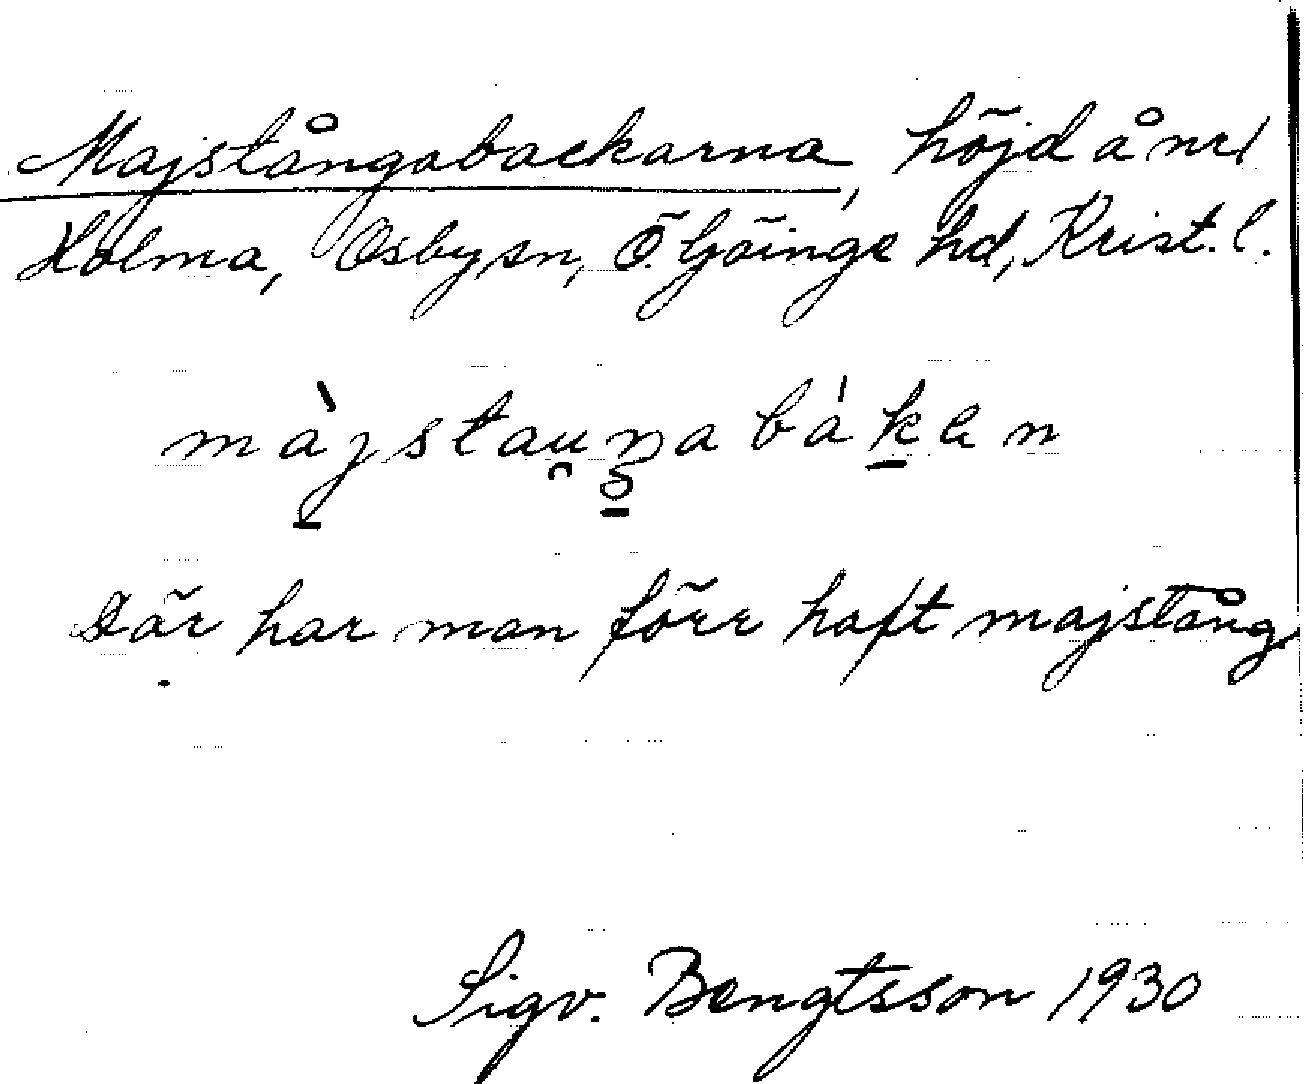 Majstångabackarna, höjd å nr 1
Holma, Osby sn, Ö. Göinge hd, Krist. l.
màjstau̯ŋabákan
Där har man förr haft majstång.
Sigv. Bengtsson 1930